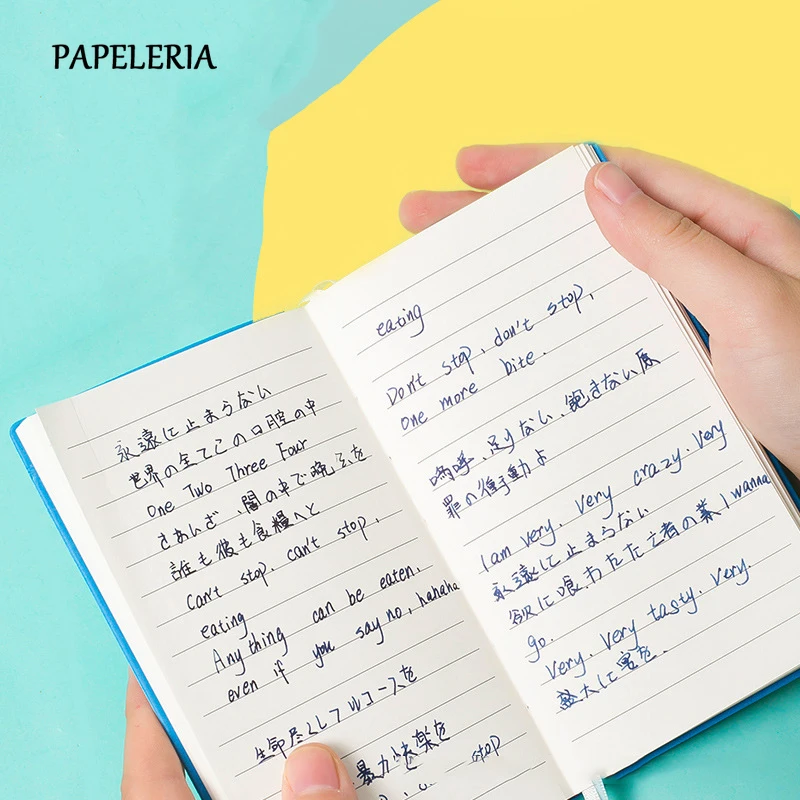 PAPELERIA
永遠に止まらない
世界の全てこの口腔の中
One Two Three Four
さあいざ、闇の中で
誰も彼も食糧へと
Can't stop. can't stop.
eating
Anything can be eaten.
even if you say no, hahaha
生命尽くして
暴力 快楽を
stop
eating
Don't stop, don't stop,
one more bite.
嗚呼、足りない、飽きない
罪の衝動よ
I am very. very crazy. very
永遠に止まらない
欲に喰われた亡者の I wanna
go.
Very. very tasty. Very.
盛大に宴を.